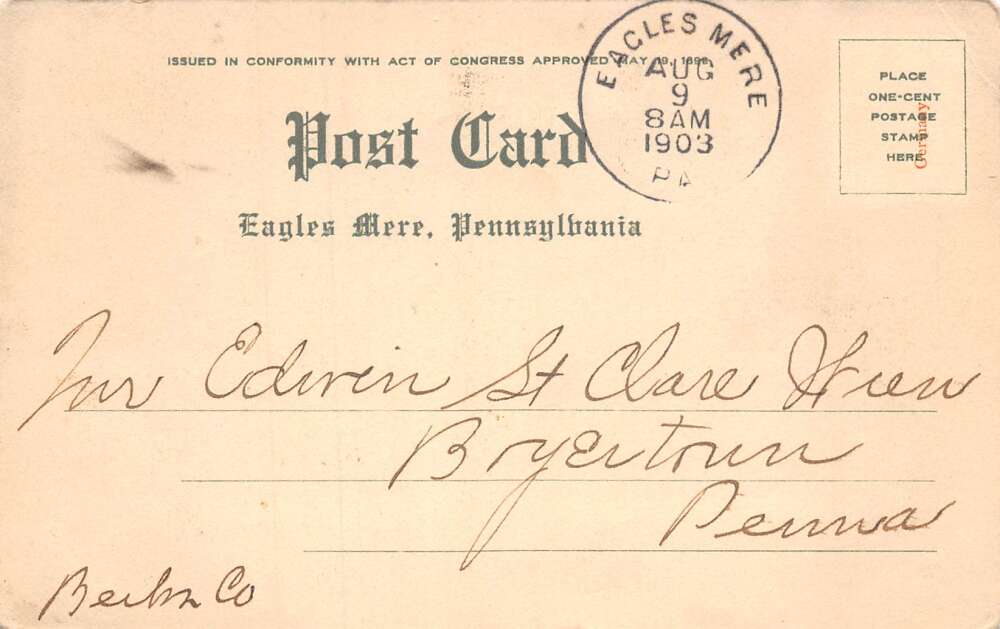 ISSUED IN CONFORMITY WITH ACT OF CONGRESS APPROVED MAY 19, 1898.
EAGLES MERE
AUG
9
8AM
1903
PA
PLACE
ONE-CENT
POSTAGE
STAMP
HERE
Germany
Post Card
Eagles Mere, Pennsylvania
Edwin St Clare Wien
Boyertown
Penna
Berks Co